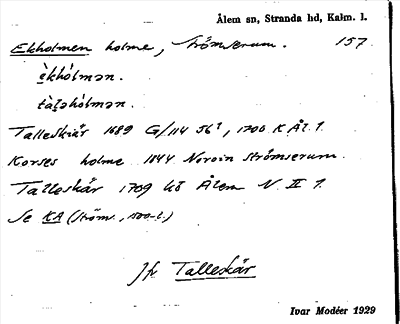 Ålem sn, Stranda hd, Kalm. l.
Ekholmen holme, Strömserum. 157.
èkhólmən.
tàḷəhólmən.
Talleskiär 1689 G/114 56¹, 1706 K Ål. 1.
Korses holme 1844 Norvin Strömserum.
Talleskär 1709 Ålem N II 1.
Se KA (Ström., 1800-t.)
Jfr Talleskär
Ivar Modéer 1929